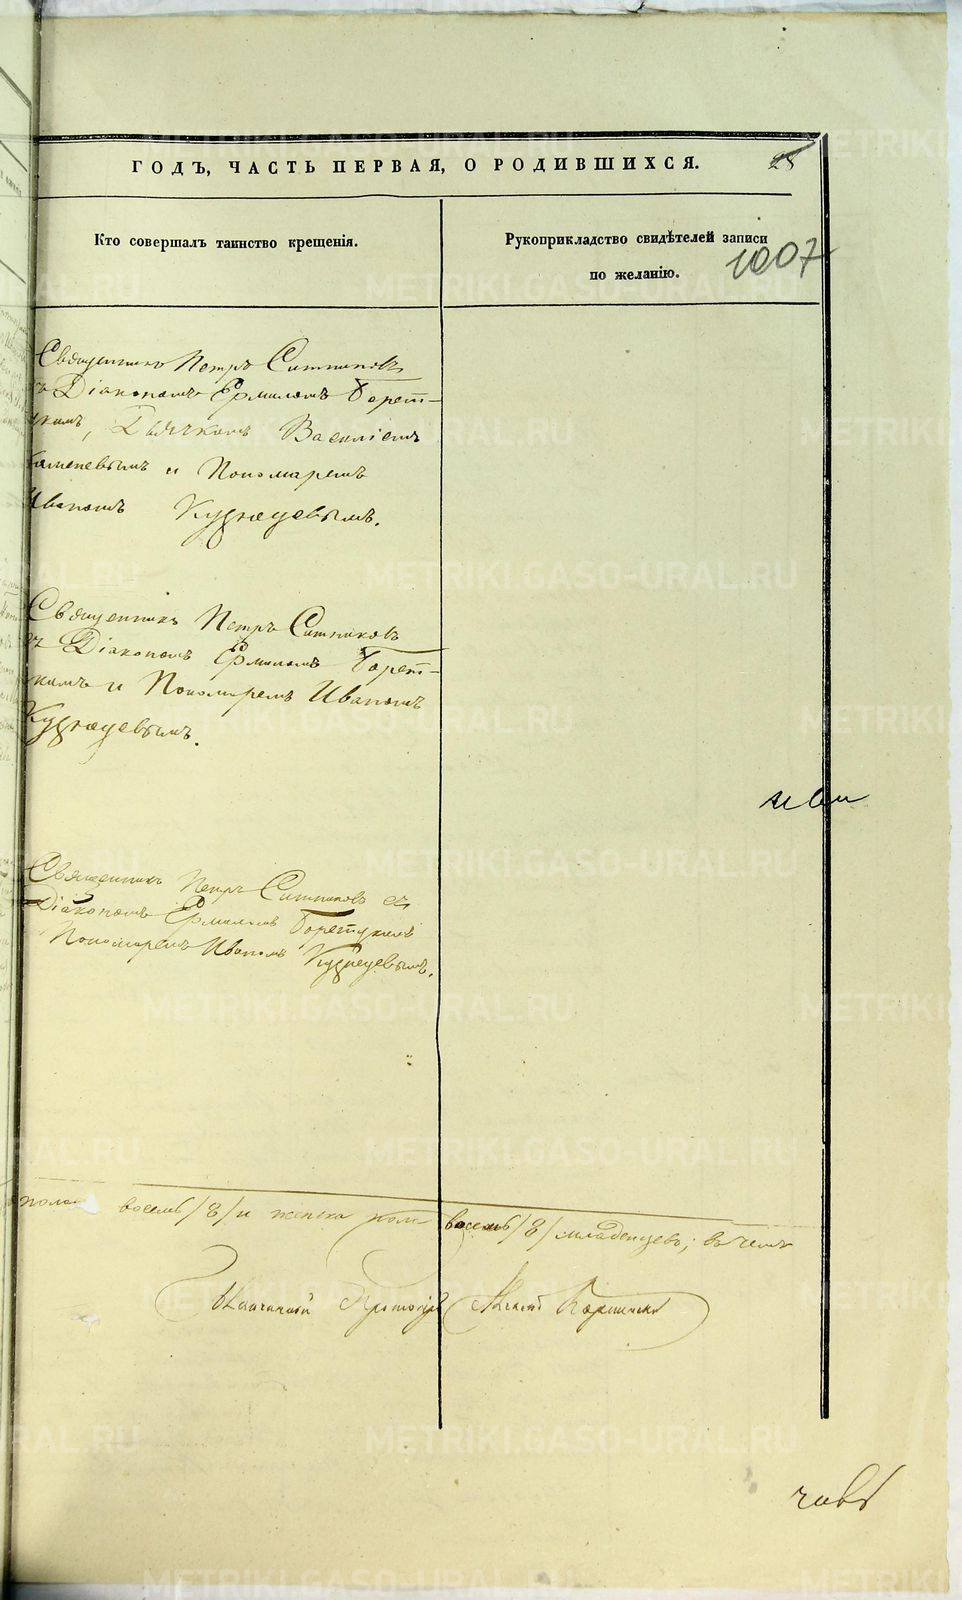 ГОДЪ, ЧАСТЬ ПЕРВАЯ, О РОДИВШИХСЯ.
Кто совершалъ таинство крещенія.
Рукоприкладство свидѣтелей записи
по желанію.
1007
Священникъ Петръ Ситниковъ
съ Діакономъ Ермиломъ Борет-
скимъ, Дьячкомъ Василіемъ
Каменевымъ и Пономаремъ
Иваномъ Кузнецевымъ.
Священникъ Петръ Ситниковъ
съ Діакономъ Ермиломъ Борет-
скимъ и Пономаремъ Иваномъ
Кузнецевымъ.
Священникъ Петръ Ситниковъ съ
Діакономъ Ермиломъ Боретскимъ
Пономаремъ Иваномъ Кузнецевымъ.
пола восемь /8/ и женска пола восемь /8/ младенцевъ; въ чемъ
METRIKI.GASO-URAL.RU